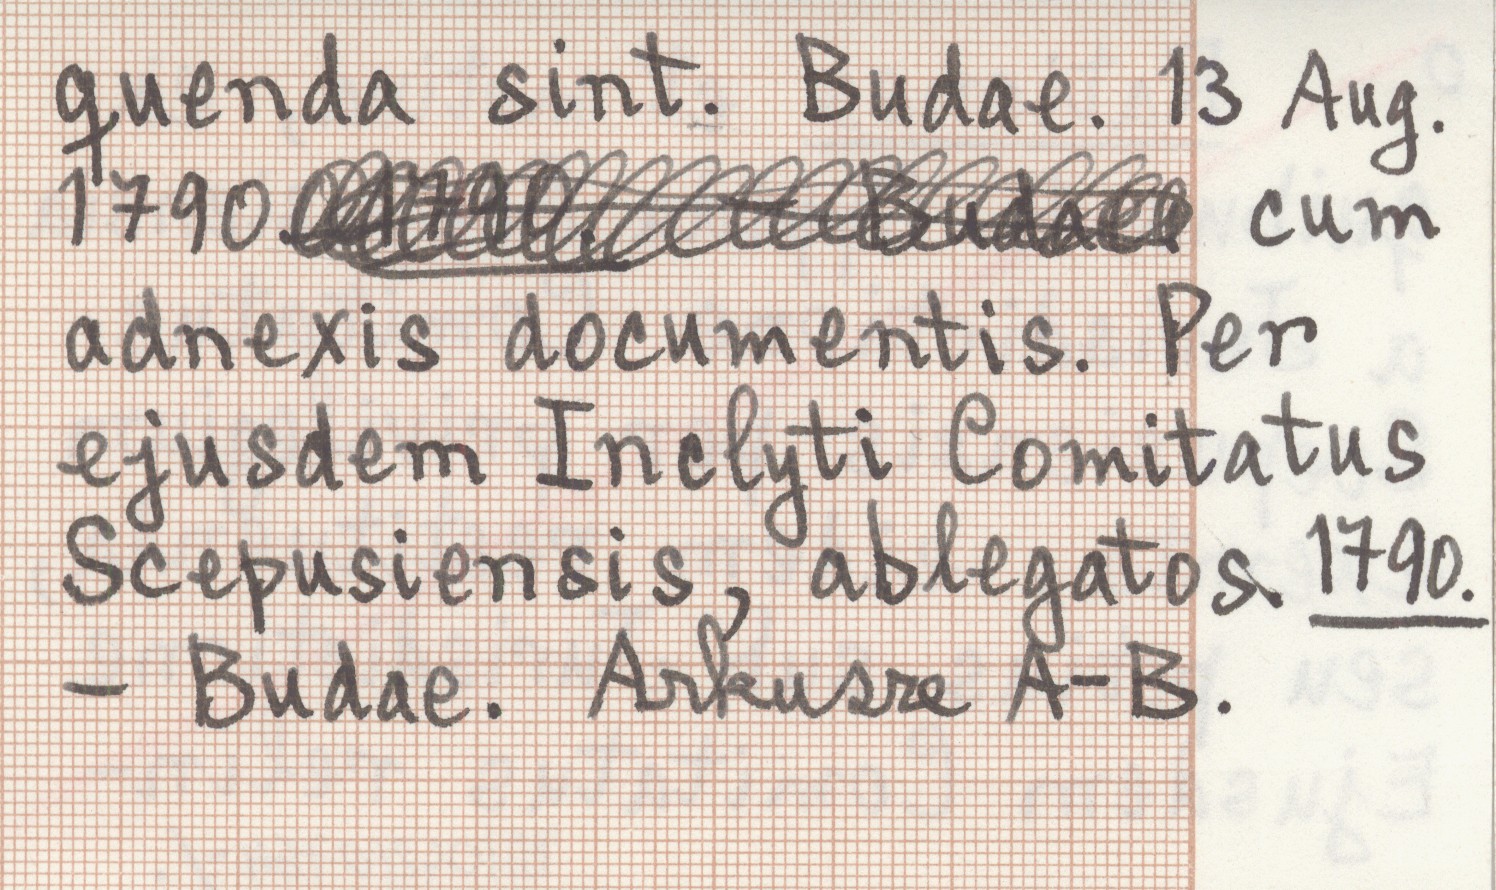 quenda sint. Budae. 13 Aug.
1790. 1790. — Budae. cum
adnexis documentis. Per
ejusdem Inclyti Comitatus
Scepusiensis, ablegatos. 1790.
— Budae. Arkusze A-B.